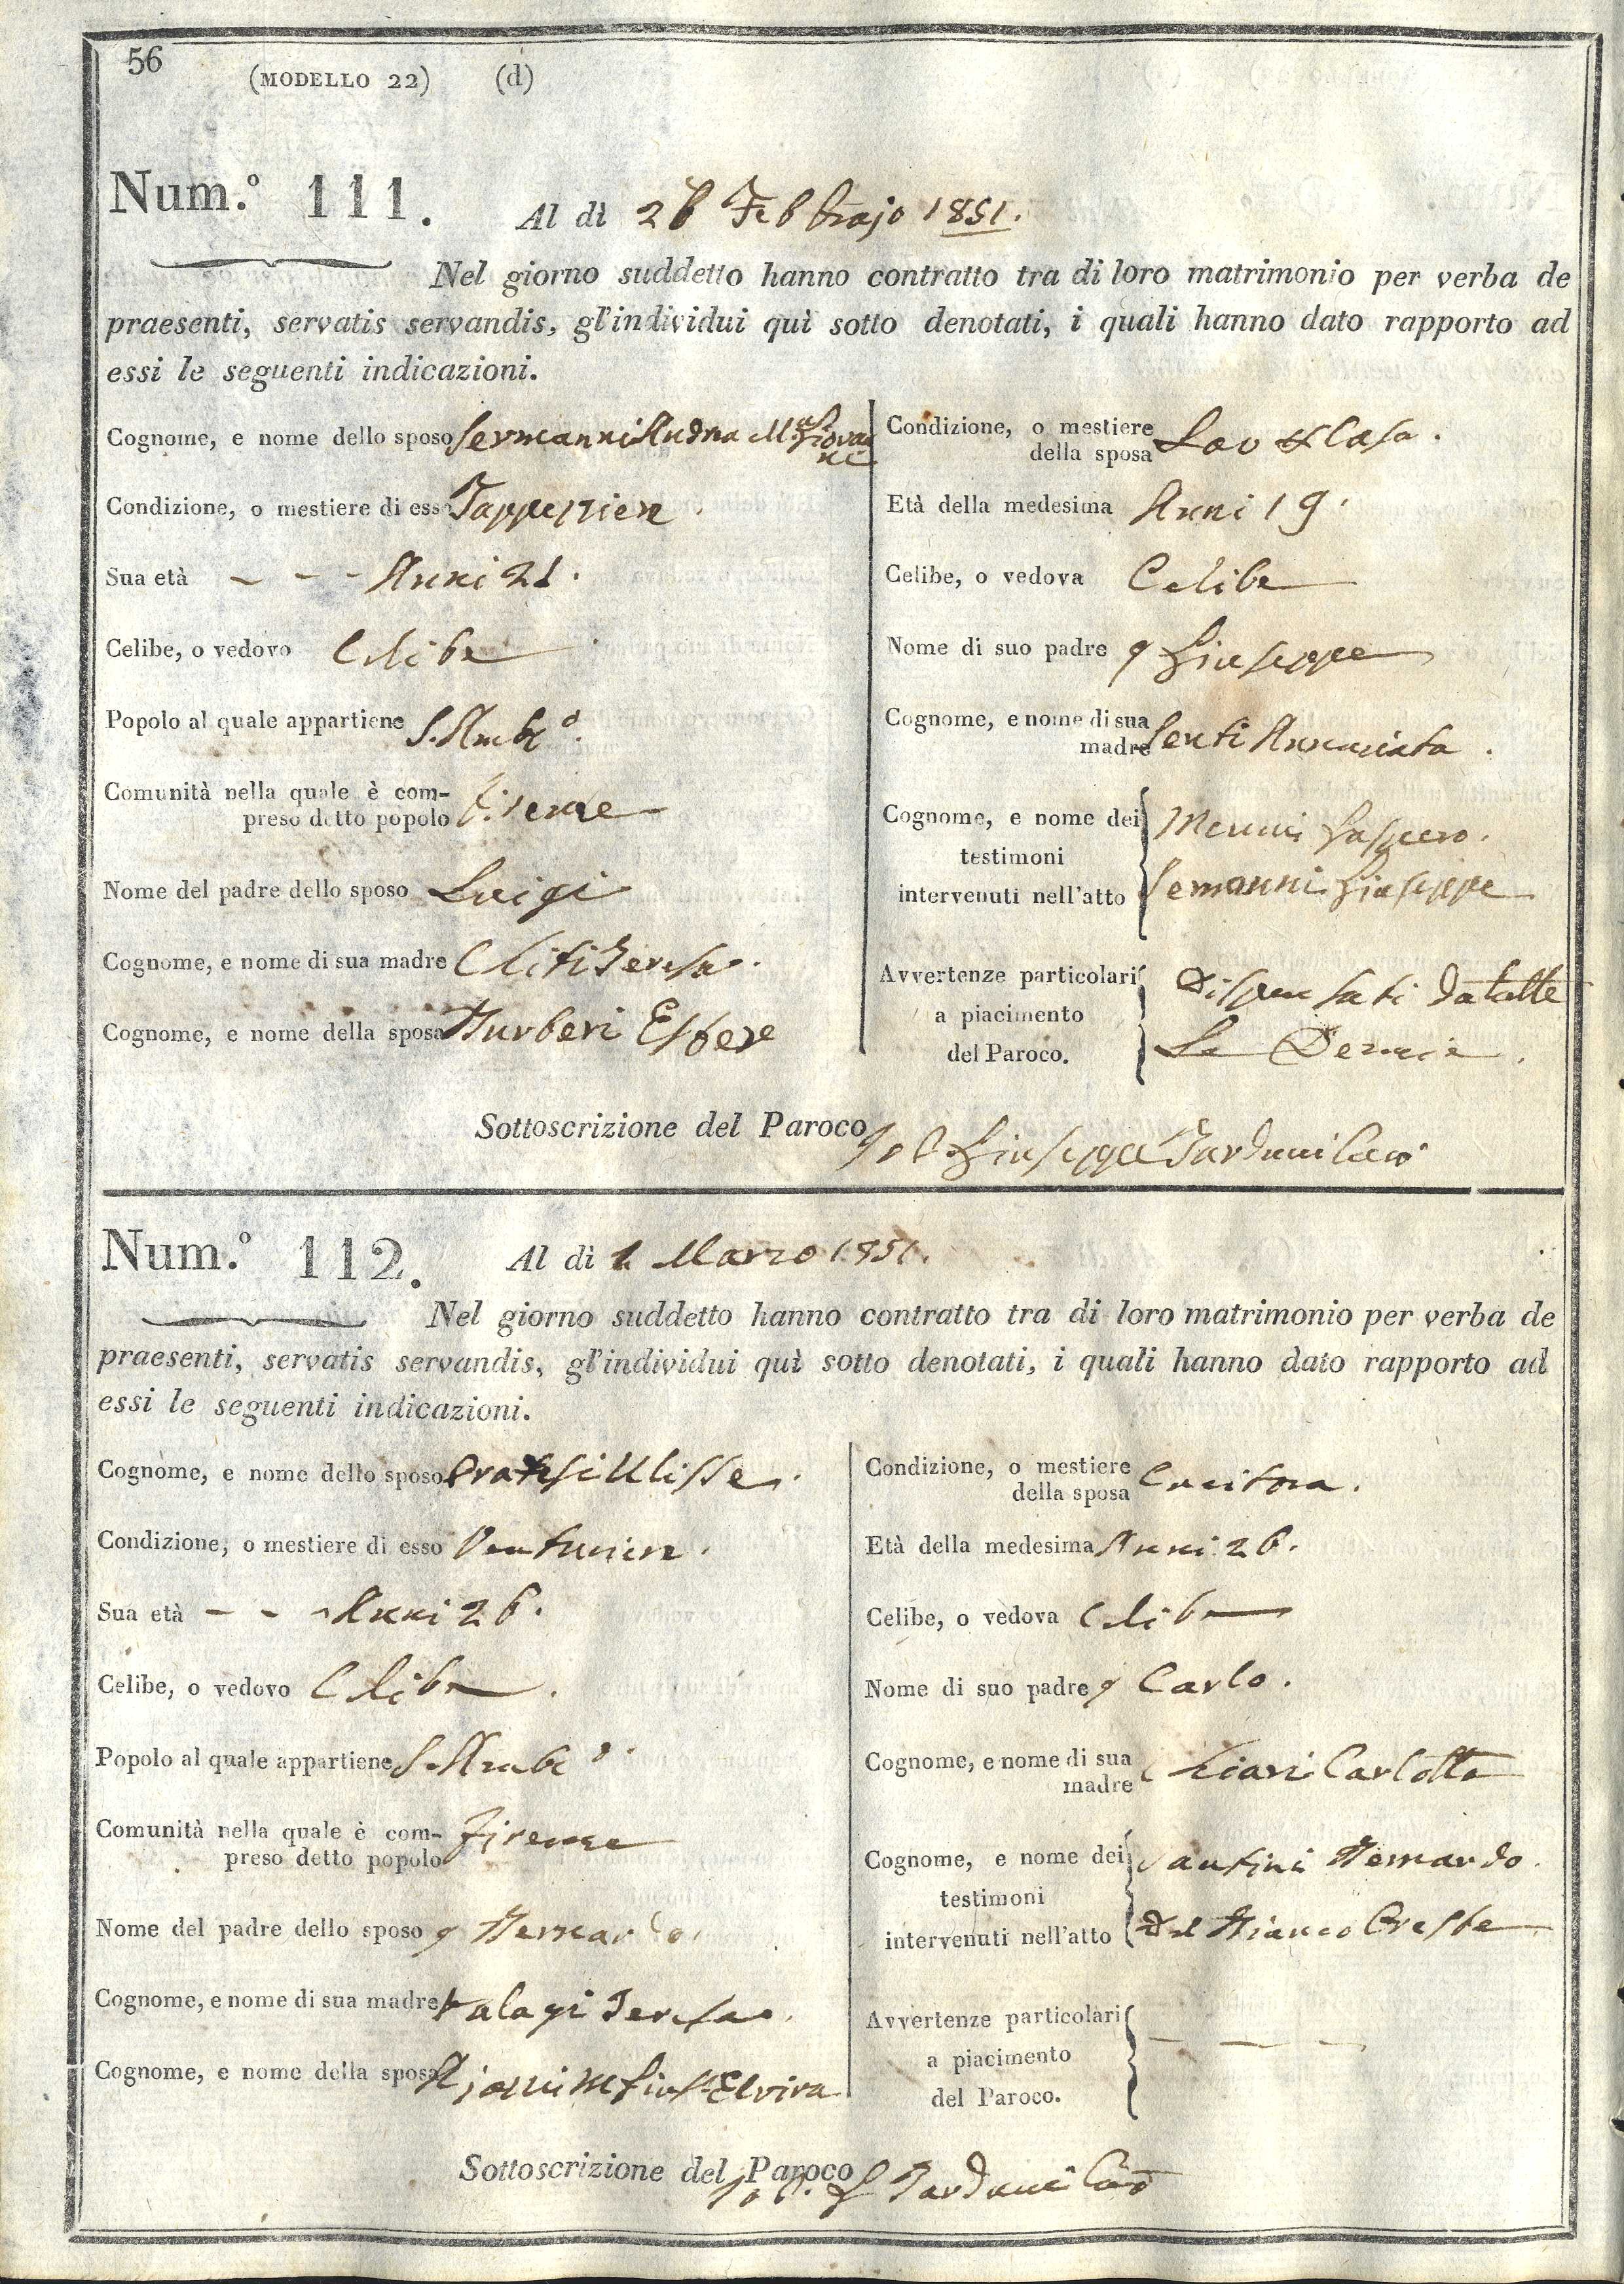 56
(MODELLO 22) (d)
Num.º 111.
Al dì 26 Febbrajo 1851.
Nel giorno suddetto hanno contratto tra di loro matrimonio per verba de
praesenti, servatis servandis, gl'individui quì sotto denotati, i quali hanno dato rapporto ad
essi le seguenti indicazioni.
Cognome, e nome dello sposo
Condizione, o mestiere di esso Tappezziere
Sua età - - - Anni 21.
Celibe, o vedovo Celibe
Popolo al quale appartiene S. Ambº.
Comunità nella quale è com-
preso detto popolo Firenze
Nome del padre dello sposo Luigi
Cognome, e nome di sua madre Teresa.
Cognome, e nome della sposa
Condizione, o mestiere
della sposa Casa.
Età della medesima Anni 19.
Celibe, o vedova Celibe
Nome di suo padre q Giuseppe
Cognome, e nome di sua
madre Annunziata.
Cognome, e nome dei
testimoni
intervenuti nell'atto
Giuseppe
Avvertenze particolari
a piacimento
del Paroco.
Dispensati da tutte
Le Denunzie.
Sottoscrizione del Paroco Giuseppe
Num.º 112.
Al dì 1 Marzo 1851.
Nel giorno suddetto hanno contratto tra di loro matrimonio per verba de
praesenti, servatis servandis, gl'individui quì sotto denotati, i quali hanno dato rapporto ad
essi le seguenti indicazioni.
Cognome, e nome dello sposo Ulisse.
Condizione, o mestiere di esso
Sua età - - - Anni 26.
Celibe, o vedovo Celibe.
Popolo al quale appartiene S. Ambº.
Comunità nella quale è com-
preso detto popolo Firenze
Nome del padre dello sposo q Bernardo.
Cognome, e nome di sua madre Teresa.
Cognome, e nome della sposa Elvira
Condizione, o mestiere
della sposa Cucitora.
Età della medesima Anni 26.
Celibe, o vedova Celibe
Nome di suo padre q Carlo.
Cognome, e nome di sua
madre Chiari Carlotta
Cognome, e nome dei
testimoni
intervenuti nell'atto
Santini Bernardo.
Del Bianco Oreste
Avvertenze particolari
a piacimento
del Paroco.
- - -
Sottoscrizione del Paroco